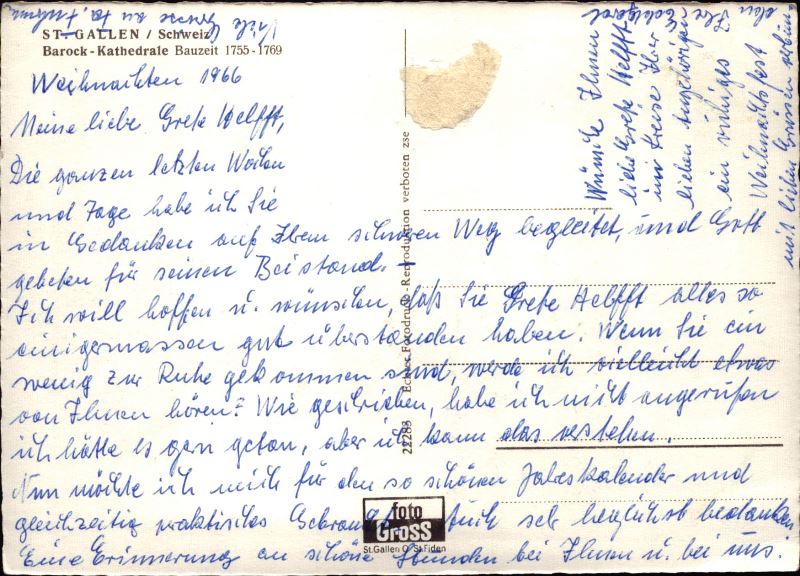 ST. GALLEN / Schweiz
Barock-Kathedrale Bauzeit 1755-1769
Weihnachten 1966
Meine liebe Grete Helfft,
Die ganzen letzten Wochen
und Tage habe ich Sie
in Gedanken auf Ihrem schweren Weg begleitet, und Gott
gebeten für seinen Beistand. —
Ich will hoffen u. wünschen, daß Sie Grete Helfft alles so
einigermassen gut überstanden haben. Wenn Sie ein
wenig zur Ruhe gekommen sind, werde ich vielleicht etwas
von Ihnen hören? Wie geschrieben, habe ich nicht angerufen
ich hätte es gern getan, aber ich kann das verstehen.
Nun möchte ich mich für den so schönen Jahreskalender und
gleichzeitig praktisches Gebrauchsstück sehr herzlichst bedanken
Eine Erinnerung an schöne Stunden bei Ihnen u. bei uns.
Wünsche Ihnen
liebe Grete Helfft
im Kreise Ihrer
lieben Angehörigen
ein ruhiges
Weihnachtsfest
mit lieben Grüssen verbin-
den Ihre
Viele Grüsse an
22283 Echtes Fotodruck Reproduktion verboten zse
foto
Gross
St.Gallen O. St.Fiden